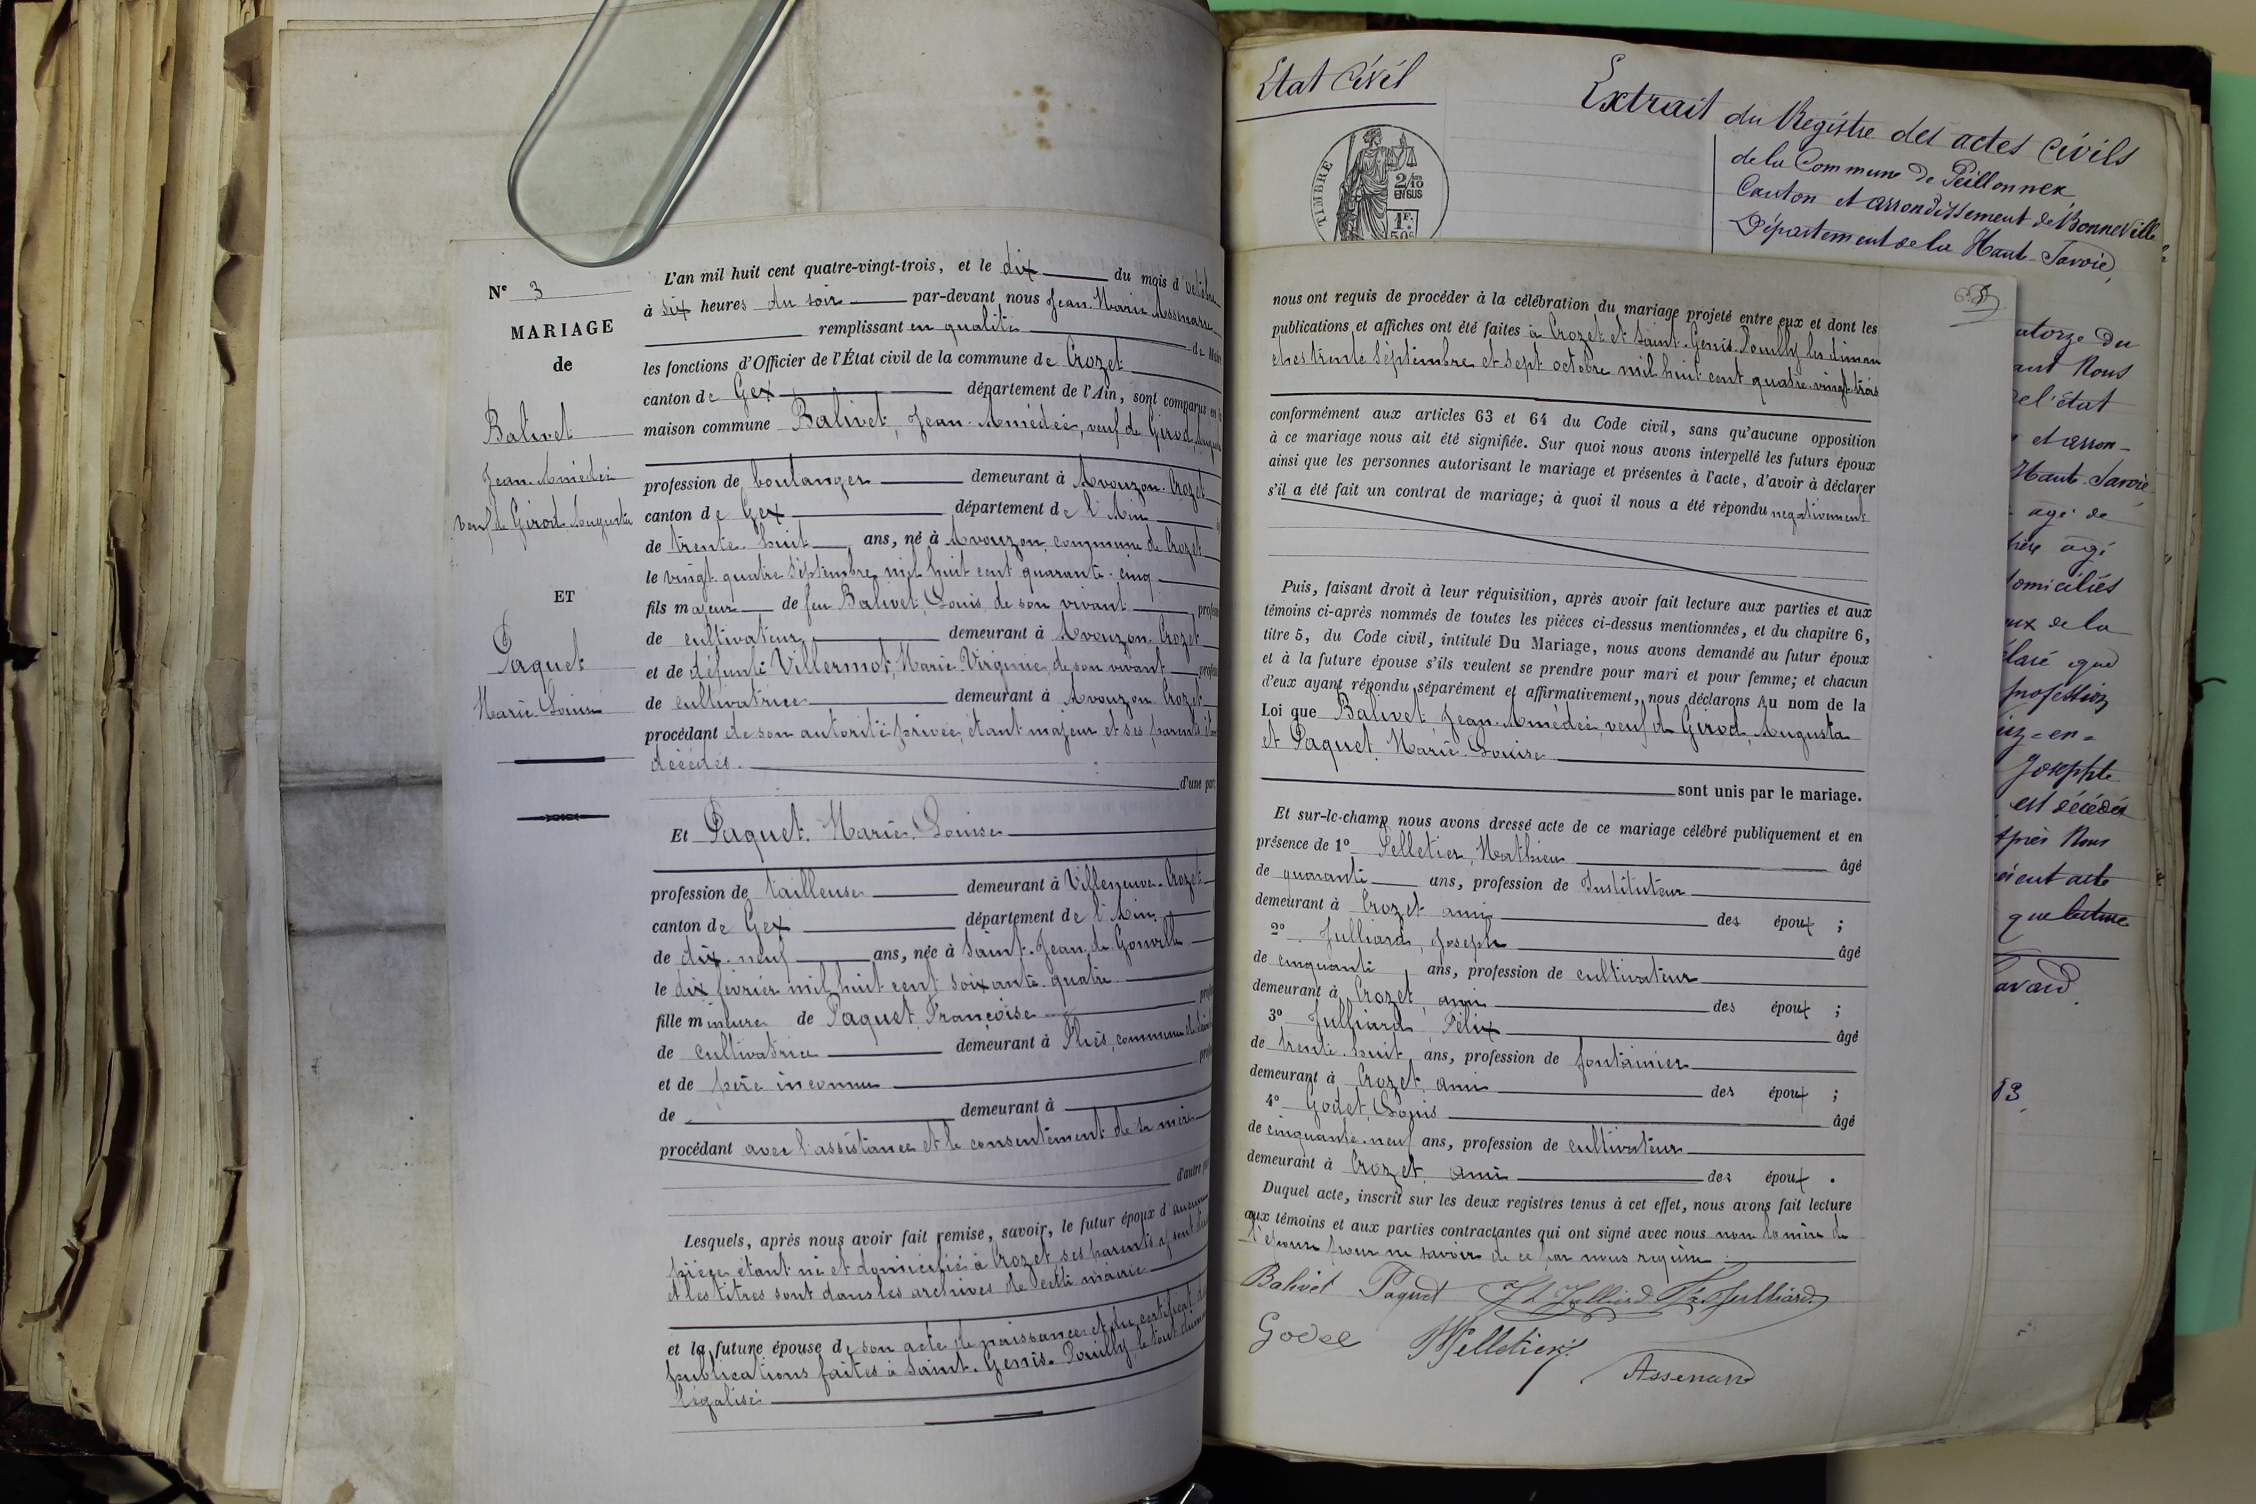 Nº 3
MARIAGE
de
Balivet
Jean-Amédée
veuf de Girod Augusta
ET
Paquet
Marie-Louise
L'an mil huit cent quatre-vingt-trois, et le dix du mois d'octobre
à six heures du soir par-devant nous Jean-Marie
remplissant en qualité de Maire
les fonctions d'Officier de l'État civil de la commune de Crozet
canton de Gex département de l'Ain, sont comparus en la
maison commune Balivet, Jean-Amédée, veuf de Girod, Augusta
profession de boulanger demeurant à Avouzon-Crozet
canton de Gex département de l'Ain
de trente-huit ans, né à Avouzon, commune de Crozet
le vingt-quatre septembre mil huit cent quarante-cinq
fils majeur de feu Balivet, Louis, de son vivant profess
de cultivateur demeurant à Avouzon-Crozet
et de défunte Villermot, Marie-Virginie, de son vivant profess
de cultivatrice demeurant à Avouzon-Crozet
procédant de son autorité privée, étant majeur et ses parents
décédés. d'une part
Et Paquet, Marie-Louise
profession de tailleuse demeurant à Villeneuve-Crozet
canton de Gex département de l'Ain
de dix-neuf ans, née à Saint-Jean-de-Gonville
le dix février mil huit cent soixante-quatre
fille mineure de Paquet, Françoise profe
de cultivatrice demeurant à commune de
et de père inconnu
de demeurant à
procédant avec l'assistance et le consentement de sa mère
d'autre part
Lesquels, après nous avoir fait remise, savoir, le futur époux d'aucune
pièce étant né et domicilié à Crozet, ses parents y sont
et les titres sont dans les archives de cette mairie
et la future épouse de son acte de naissance et du certificat de
publications faites à Saint-Genis-Pouilly, le tout dûment
légalisé
Etat Civil
Extrait du Registre des actes Civils
de la Commune de Peillonnex
Canton et arrondissement de Bonneville
Département de la Haute-Savoie
TIMBRE
2/10
EN SUS
1F.
50c
nous ont requis de procéder à la célébration du mariage projeté entre eux et dont les
publications et affiches ont été faites à Crozet et Saint-Genis-Pouilly les diman
ches trente septembre et sept octobre mil huit cent quatre-vingt-trois
conformément aux articles 63 et 64 du Code civil, sans qu'aucune opposition
à ce mariage nous ait été signifiée. Sur quoi nous avons interpellé les futurs époux
ainsi que les personnes autorisant le mariage et présentes à l'acte, d'avoir à déclarer
s'il a été fait un contrat de mariage; à quoi il nous a été répondu negativement
Puis, faisant droit à leur réquisition, après avoir fait lecture aux parties et aux
témoins ci-après nommés de toutes les pièces ci-dessus mentionnées, et du chapitre 6,
titre 5, du Code civil, intitulé Du Mariage, nous avons demandé au futur époux
et à la future épouse s'ils veulent se prendre pour mari et pour femme; et chacun
d'eux ayant répondu séparément et affirmativement, nous déclarons Au nom de la
Loi que Balivet, Jean-Amédée, veuf de Girod, Augusta
et Paquet, Marie-Louise
sont unis par le mariage.
Et sur-le-champ nous avons dressé acte de ce mariage célébré publiquement et en
présence de 1º Pelletier, Mathieu âgé
de quarante ans, profession de Instituteur
demeurant à Crozet ami des époux ;
2º Julliard, Joseph âgé
de cinquante ans, profession de cultivateur
demeurant à Crozet, ami des époux ;
3º Julliard, Félix âgé
de trente-huit ans, profession de fontainier
demeurant à Crozet, ami des époux ;
4º Godet, Louis âgé
de cinquante-neuf ans, profession de cultivateur
demeurant à Crozet, ami des époux .
Duquel acte, inscrit sur les deux registres tenus à cet effet, nous avons fait lecture
aux témoins et aux parties contractantes qui ont signé avec nous non la mère de
l'épouse pour ne savoir de ce par nous requise
Balivet Paquet Jh Julliard Julliard
Godee Pelletier
atorze du
ant Nous
de l'état
et arron-
Haute-Savoie
agé de
agé
domiciliés
de la
claré que
profession
-en-
Josephte
est décédée
Après Nous
acte
que lecture
83